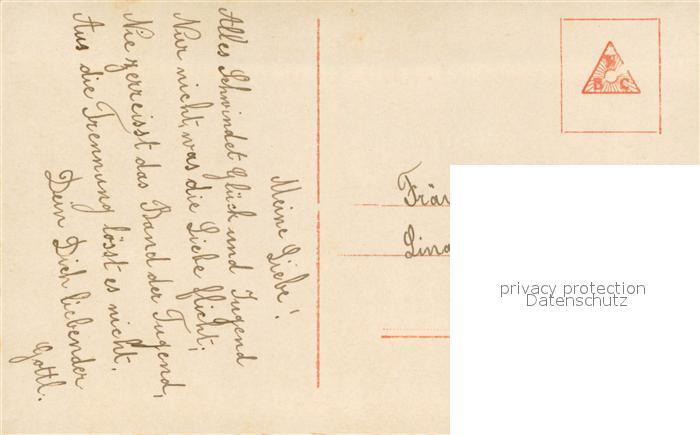 Meine Liebe!
Alles Schwindet Glück und Jugend
Nur nicht, was die Liebe flicht;
Nie zerreisst das Band der Tugend,
Aus die Trennung lösst es nicht.
Dein Dich liebender
Gottl.
Fräu
Lina
privacy protection
Datenschutz